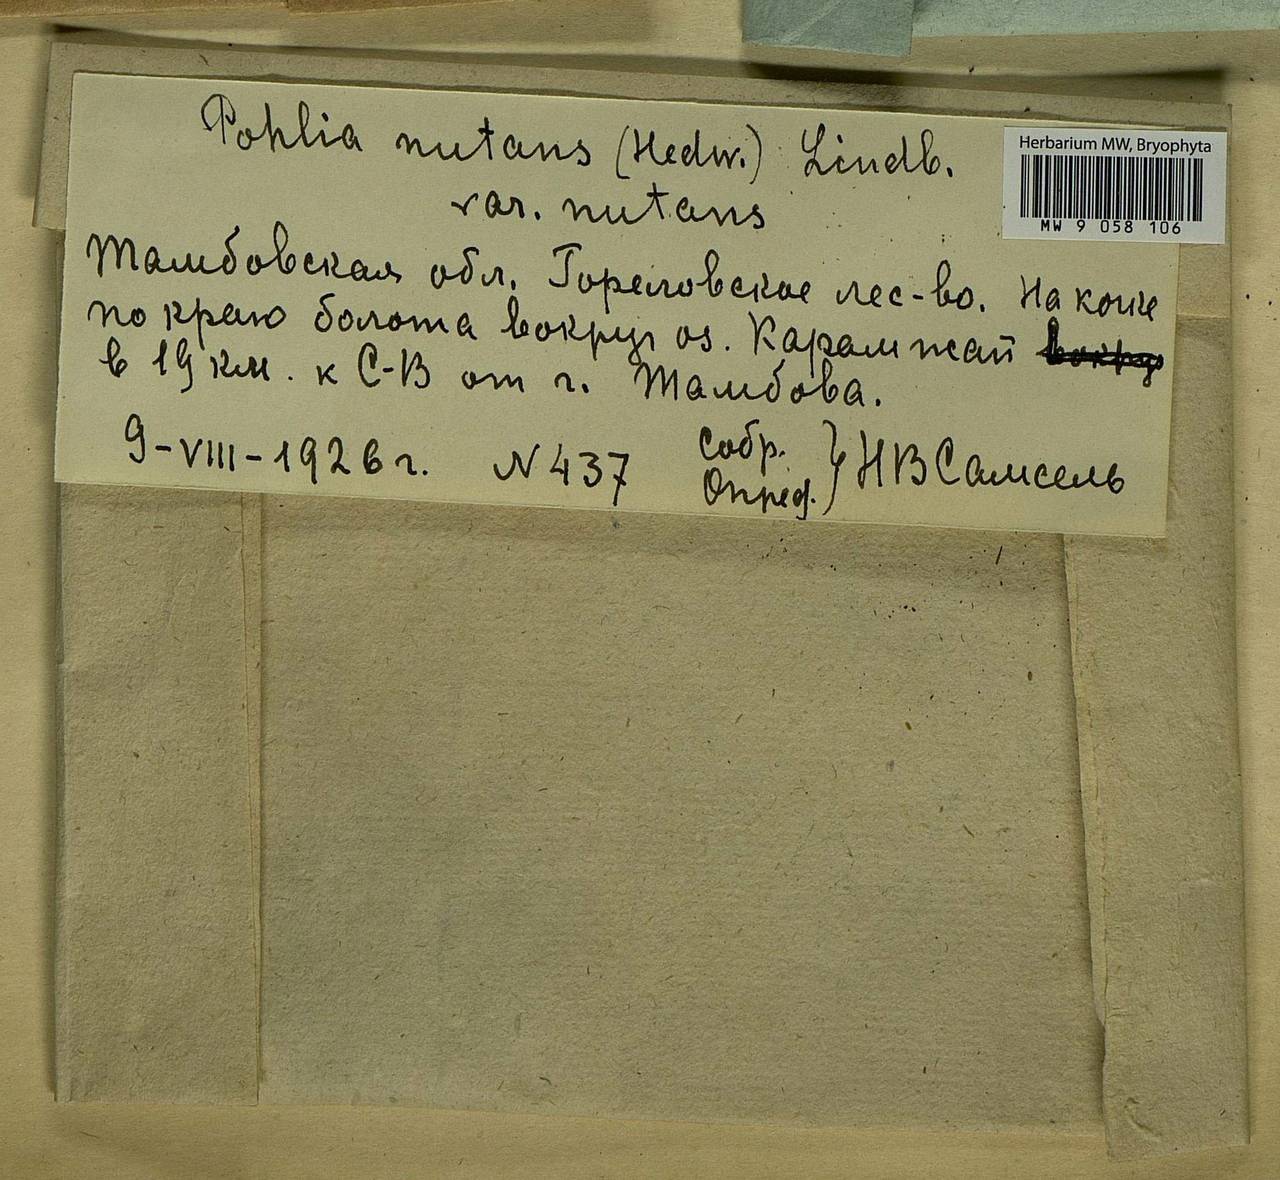 Pohlia nutans (Hedw.) Lindb.
var. nutans
Herbarium MW, Bryophyta
MW 9 058 106
Тамбовская обл. Гореловское лес-во. На кочке
по краю болота вокруг оз. Карамжай
в 19 км. к С-В от г. Тамбова.
9-VIII-1926 г. N 437
Собр.
Опред. } НВСамсель